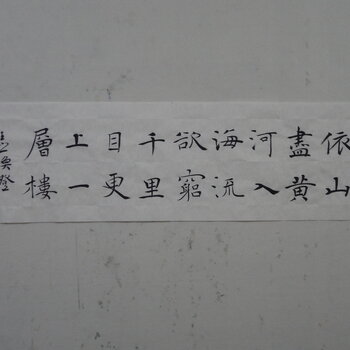 依山
盡黃
河入
海流
欲窮
千里
目更
上一
層樓